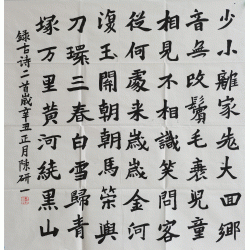 少小離家老大回鄉
音無改鬢毛衰兒童
相見不相識笑問客
從何處來歲歲金河
復玉關朝朝馬策與
刀環三春白雪歸青
塚万里黃河繞黑山
錄古诗二首歲辛丑正月陳研一